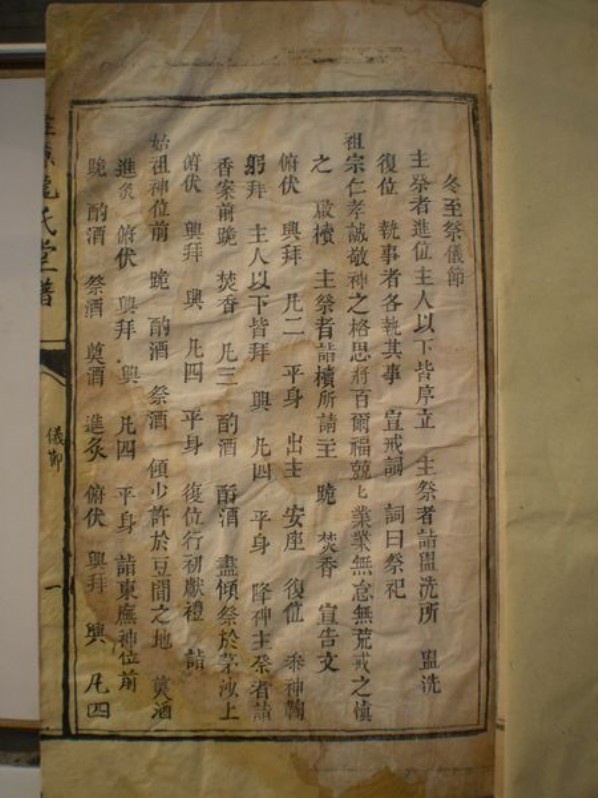 冬至祭儀節
主祭者進位主人以下皆序立 主祭者詣盥洗所 盥洗
復位 執事者各執其事 宣戒詞 詞曰祭祀
祖宗仁孝誠敬神之格思將百爾福兢匕業業無怠無荒戒之慎
之 啟櫝 主祭者詣櫝所請主 跪 焚香 宣告文
俯伏 興拜 凡二 平身 出主 安座 復位 叅神鞠
躬拜 主人以下皆拜 興 凡四 平身 降神主祭者詣
香案前跪 焚香 凡三 酌酒 酹酒 盡傾祭於茅沙上
俯伏 興拜 興 凡四 平身 復位行初獻禮 詣
始祖神位前 跪 酌酒 祭酒 傾少許於豆間之地 奠酒
進炙 俯伏 興拜 興 凡四 平身 詣東廡神位前
跪 酌酒 祭酒 奠酒 進炙 俯伏 興拜 興 凡四
氏堂譜
儀節
一